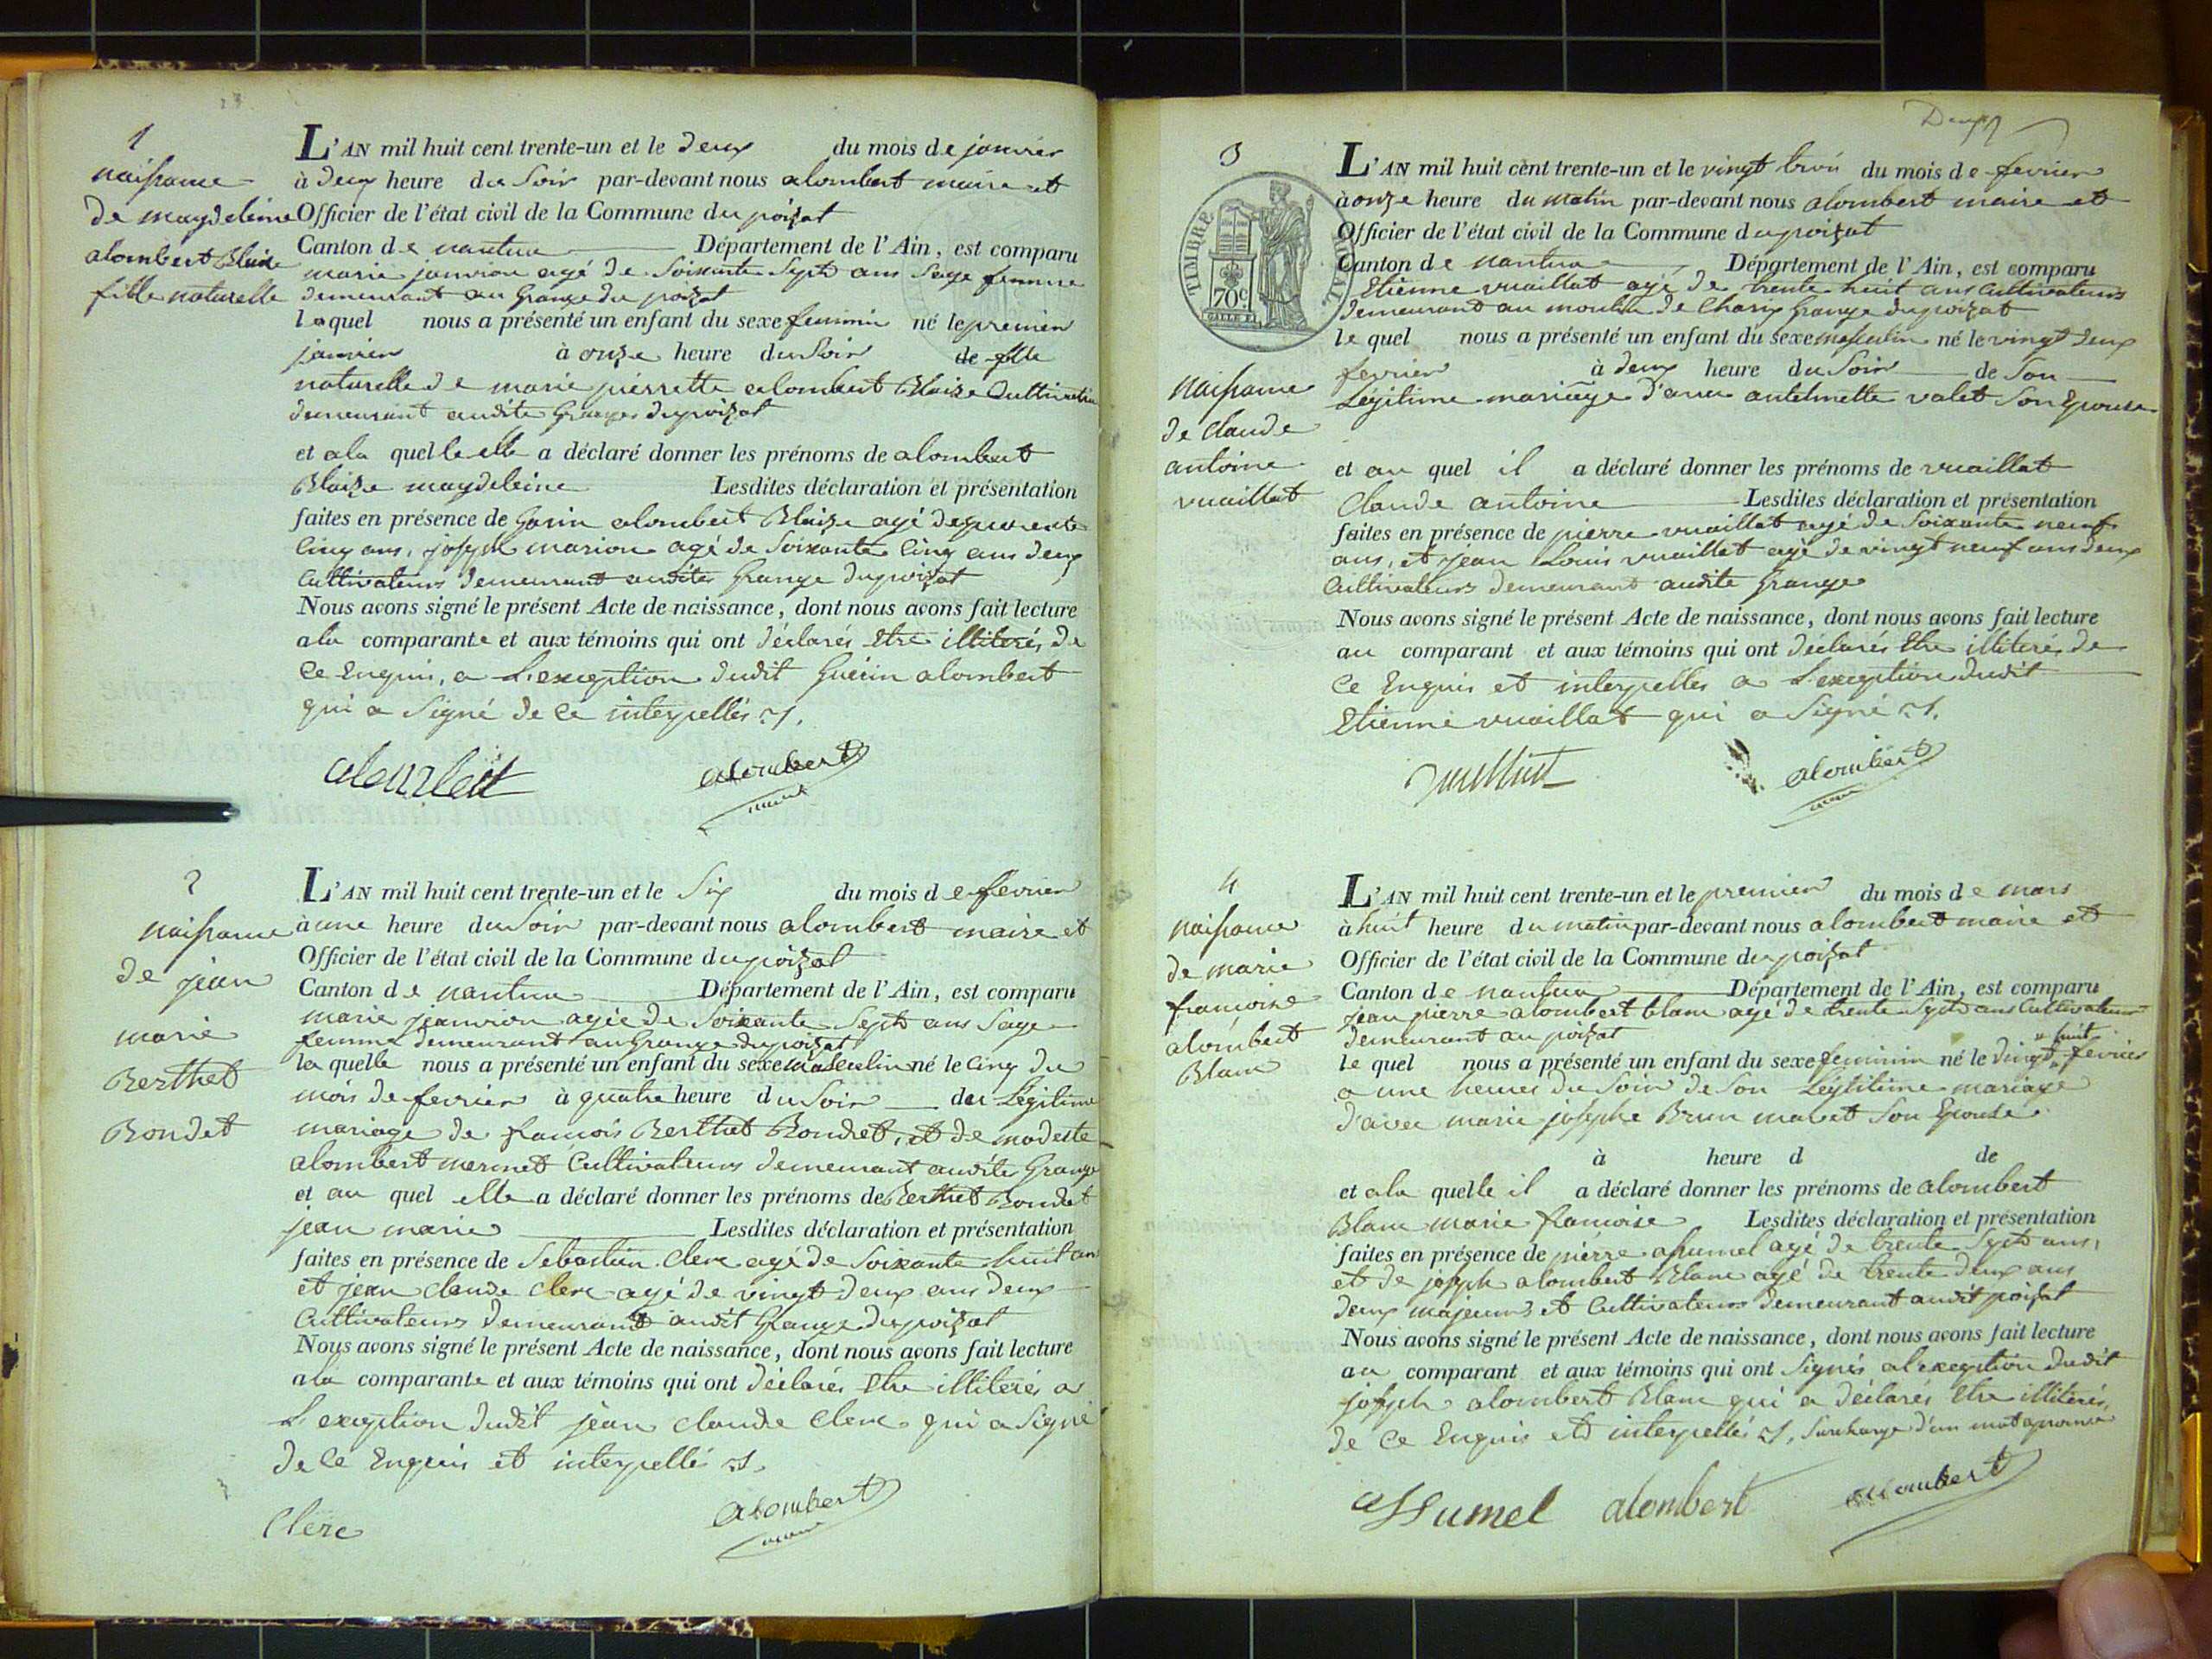 1
naissance
de maydeleine
alombert Blaize
fille naturelle
L'AN mil huit cent trente-un et le deux du mois de janvier
à deux heure du soir par-devant nous alombert maire et
Officier de l'état civil de la Commune du poizat
Canton de nantua Département de l'Ain, est comparu
marie janvion agé de soixante sept ans sage femme
demeurant au Grange du poizat
laquel nous a présenté un enfant du sexe feminin né le premier
janvier à onze heure du soir de fille
naturelle de marie pierrette alombert Blaize Cultivatrice
demeurant audite Granges du poizat
et a la quelle elle a déclaré donner les prénoms de alombert
Blaize maydeleine Lesdites déclaration et présentation
faites en présence de alombert Blaize agé de quarente
cinq ans, joseph marion agé de soixante cinq ans deux
Cultivateurs demeurant audites Grange du poizat
Nous avons signé le présent Acte de naissance, dont nous avons fait lecture
a la comparante et aux témoins qui ont déclarés Etre illiterés de
ce Enquis, a L'exception dudit Guérin alombert
qui a signé de ce interpellés
alombert alombert
maire
2
naissance
de jean
marie
Berthet
Bondet
L'AN mil huit cent trente-un et le six du mois de fevrier
à une heure du soir par-devant nous alombert maire et
Officier de l'état civil de la Commune du poizat
Canton de nantua Département de l'Ain, est comparu
marie jeanvion agée de soixante sept ans sage
femme demeurant au Grange du poizat
la quelle nous a présenté un enfant du sexe masculin né le cinq du
mois de fevrier à quatre heure du soir du Légitime
mariage de francois Berthet Bondet, et de modeste
alombert mermet Cultivateurs demeurant audites Grange
et au quel elle a déclaré donner les prénoms de Berthet Bondet
jean marie Lesdites déclaration et présentation
faites en présence de Sebastien Clerc agé de soixante huit ans
et jean claude clerc agé de vingt deux ans deux
Cultivateurs demeurant audit Grange du poizat
Nous avons signé le présent Acte de naissance, dont nous avons fait lecture
a la comparante et aux témoins qui ont déclarés Etre illiterés a
L'exception dudit jean claude Clerc qui a signé
de ce Enquis et interpellé
Clerc alombert
maire
Deux
3
TIMBRE ROYAL
70c
naissance
de claude
antoine
vuaillat
L'AN mil huit cent trente-un et le vingt trois du mois de fevrier
à onze heure du matin par-devant nous alombert maire et
Officier de l'état civil de la Commune du poizat
Canton de nantua Département de l'Ain, est comparu
Etienne vuaillat agé de trente huit ans Cultivateurs
demeurant au moulin de Charix Grange du poizat
le quel nous a présenté un enfant du sexe masculin né le vingt deux
fevrier à deux heure du soir de son
Légitime mariage d'avec antelmette valet son Epouse
et au quel il a déclaré donner les prénoms de vuaillat
Claude antoine Lesdites déclaration et présentation
faites en présence de pierre vuaillat agé de soixante neuf
ans, et jean Louis vuaillat agé de vingt neuf ans deux
Cultivateurs demeurant audite Grange
Nous avons signé le présent Acte de naissance, dont nous avons fait lecture
au comparant et aux témoins qui ont déclarés Etre illiterés de
ce Enquis et interpellés a L'exception dudit
Etienne vuaillat qui a signé
vuaillat alombert
maire
4
naissance
de marie
francoise
alombert
Blanc
L'AN mil huit cent trente-un et le premier du mois de mars
à huit heure du matin par-devant nous alombert maire et
Officier de l'état civil de la Commune du poizat
Canton de nantua Département de l'Ain, est comparu
jean pierre alombert blanc agé de trente sept ans Cultivateur
demeurant au poizat
le quel nous a présenté un enfant du sexe feminin né le vingt huit fevrier
a une heures du soir de son Légitime mariage
d'avec marie josephe Brun son Epouse
à heure d de
et a la quelle il a déclaré donner les prénoms de alombert
Blanc marie francoise Lesdites déclaration et présentation
faites en présence de pierre agé de trente sept ans,
et de joseph alombert Blanc agé de trente deux ans
deux majeurs et Cultivateurs demeurant audit poizat
Nous avons signé le présent Acte de naissance, dont nous avons fait lecture
au comparant et aux témoins qui ont signés a l'exception dudit
joseph alombert Blanc qui a déclarés Etre illiterés,
de ce Enquis et interpellés surcharge d'un mot
alombert alombert